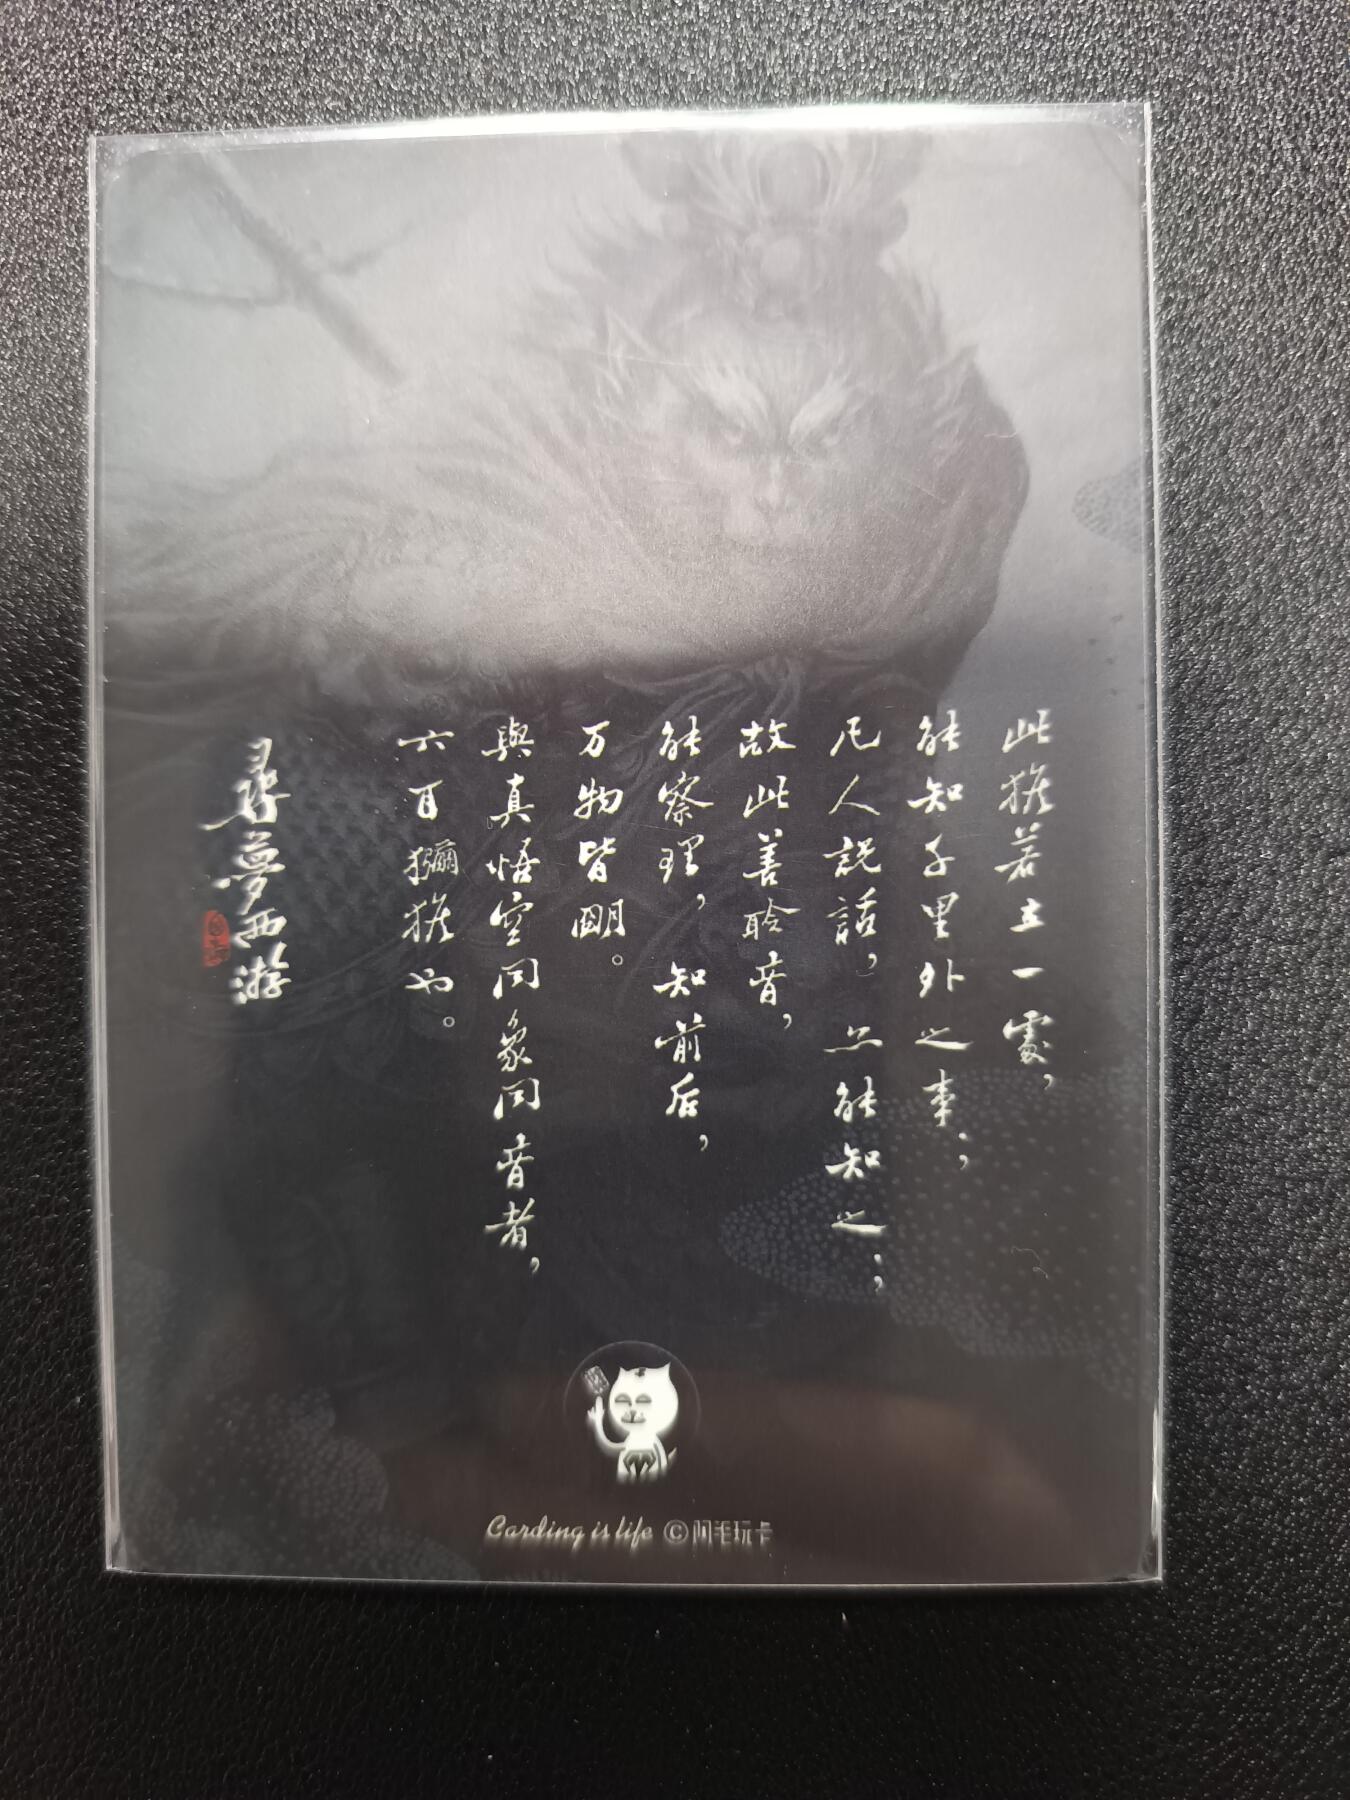 此猴若立一處，
能知千里外之事；
凡人説話，亦能知之；
故此善聆音，
能察理，知前后，
万物皆明。
與真悟空同象同音者，
六耳獼猴也。
尋夢西游
Carding is life ©阿毛玩卡